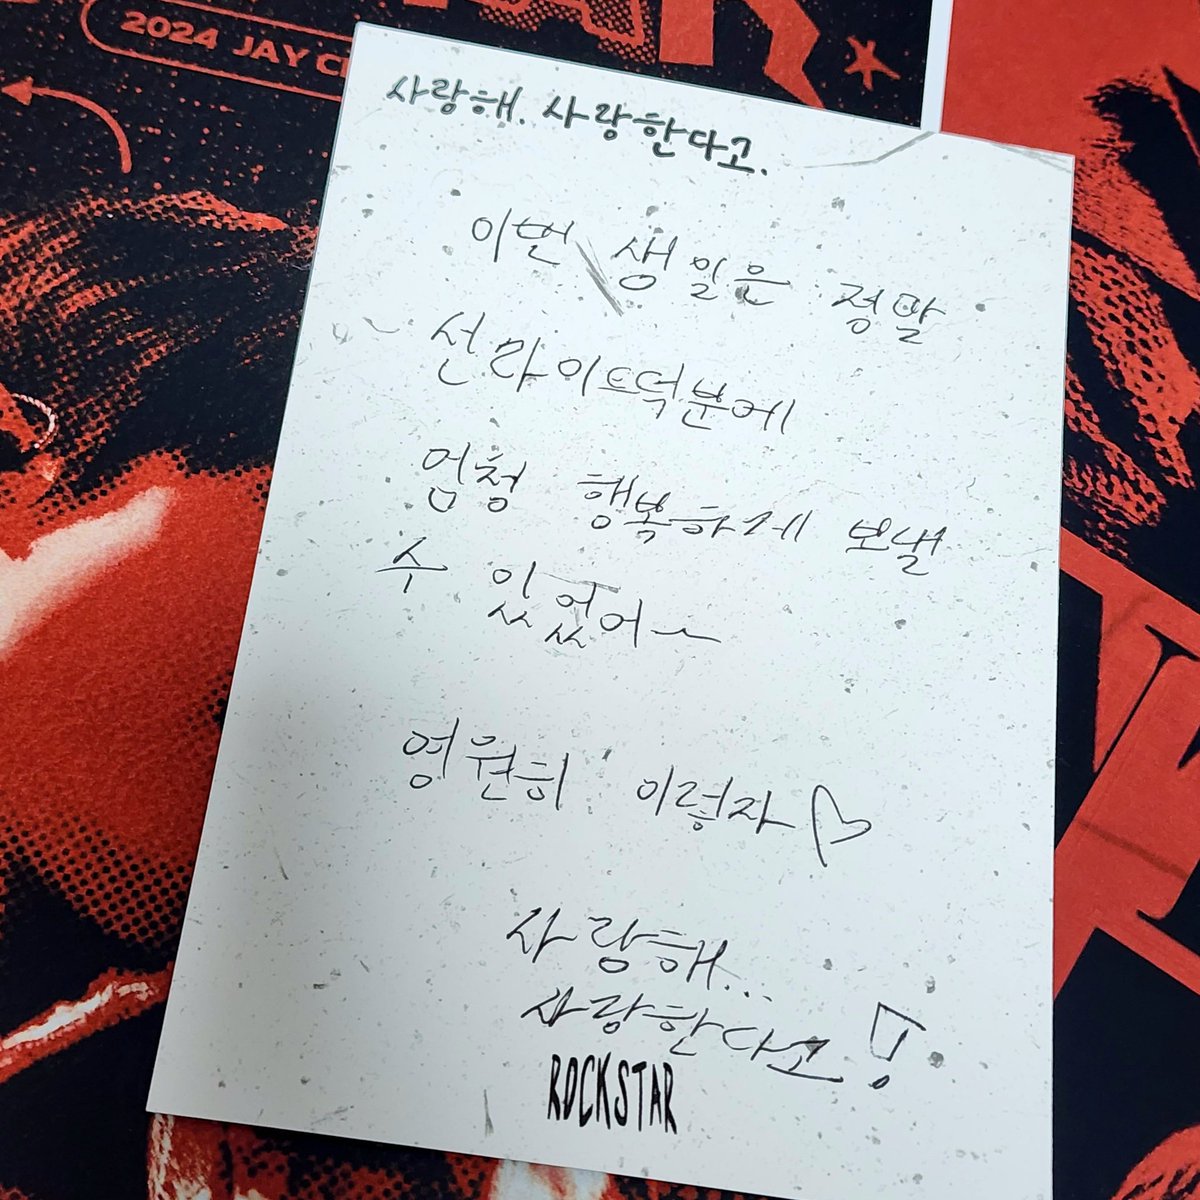 2024 JAY C
사랑해. 사랑한다고.
이번 생일은 정말
선라이드덕분에
엄청 행복하게 보낼
수 있었어~
영원히 이렇자♡
사랑해...
사랑한다고!
ROCKSTAR